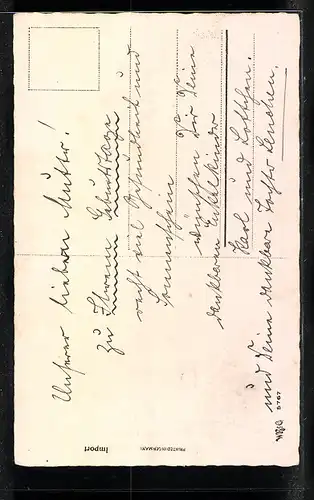 Unserer lieben Mutter!
zu Ihrem Geburtstage
recht viel Gesundheit und
Sonnenschein
wünschen Dir Deine
dankbaren Enkelkinder
Karl und Lottchen.
und Deine dankbare Tochter Lenchen.
PRINTED IN GERMANY
Import
5767